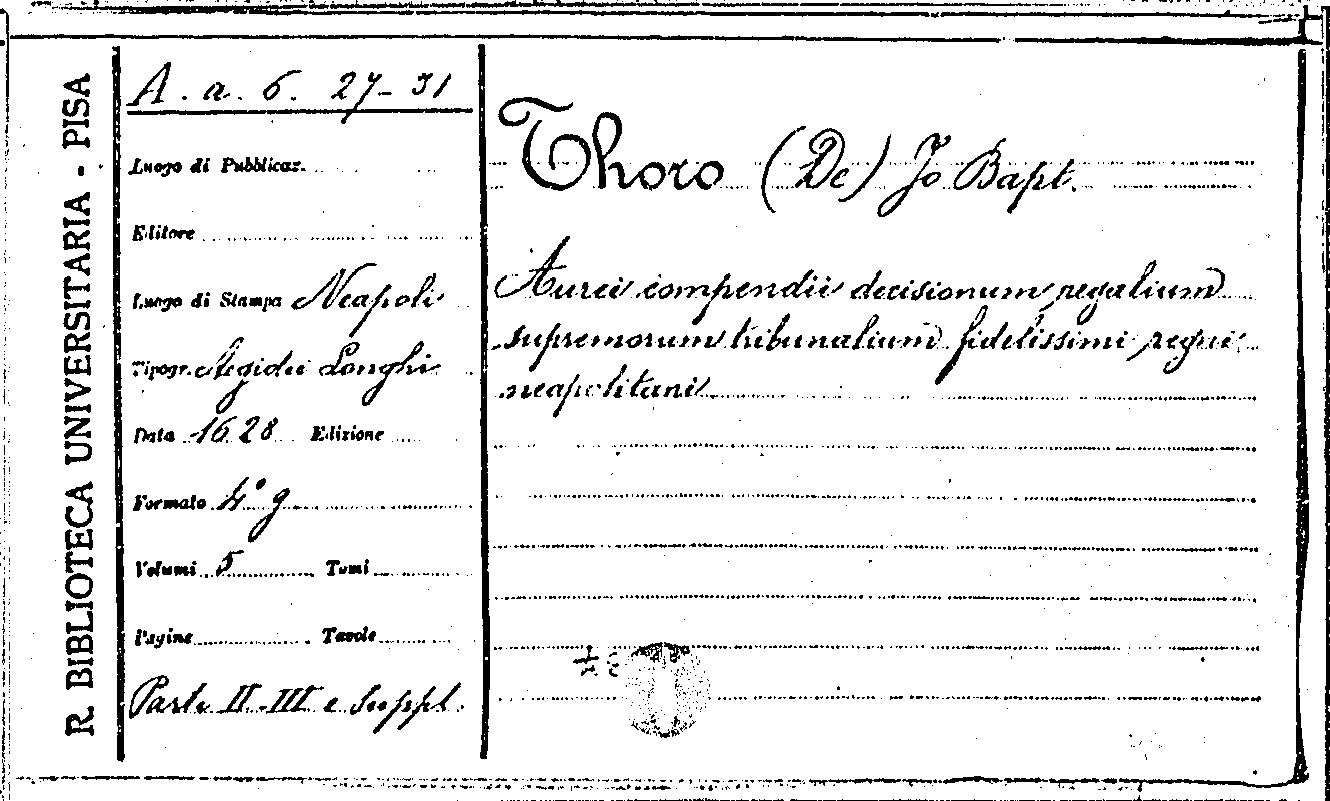 R. BIBLIOTECA UNIVERSITARIA - PISA
A. a. 6. 27-31
Luogo di Pubblicaz.
Editore
Luogo di Stampa Neapoli
Tipogr. Aegidii Longhi
Data 1628 Edizione
Formato 4° g
Volumi 5 Tomi
Pagine Tavole
Parte II-III e Suppl.
Thoro (De) Jo Bapt.
Aurei compendii decisionum regalium
supremorum tribunalium fidelissimi regni
neapolitani